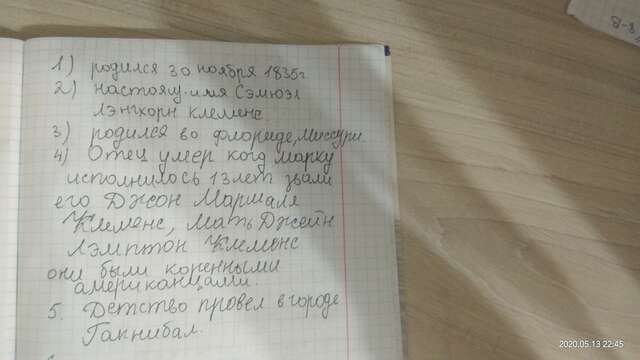 1) родился 30 ноября 1835г
2) настоящ. имя Сэмюэл
Лэнгхорн Клеменс.
3) родился во Флориде, Миссури.
4) Отец умер когд марку
исполнилось 13 лет звали
его Джон Маршалл
Клеменс, Мать Джейн
Лэмптон Клеменс
они были коренными
американцами.
5. Детство провел в городе
Ганнибал.
2020.05.13 22:45